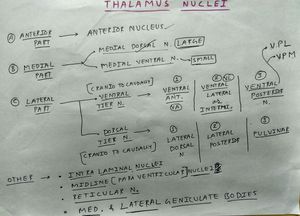 THALAMUS NUCLEI
(A) ANTERIOR PART → ANTERIOR NUCLEUS
(B) MEDIAL PART
MEDIAL DORSAL N. LARGE
MEDIAL VENTRAL N. SMALL
(C) LATERAL PART
(CRANIO TO CAUDALLY)
VENTRAL TIER N.
① VENTRAL ANT. VA
② VL VENTRAL LATERAL or INTERMI.
③ VENTRAL POSTERIOR N.
V.PL
VPM
DORSAL TIER N.
(CRANIO TO CAUDALLY)
① LATERAL DORSAL N
② LATERAL POSTERIOR
③ PULVINAR
OTHER - • INTRA LAMINAL NUCLEI
• MIDLINE (PARA VENTRICULAR) NUCLEI
• RETICULAR N.
• MED. & LATERAL GENICULATE BODIES